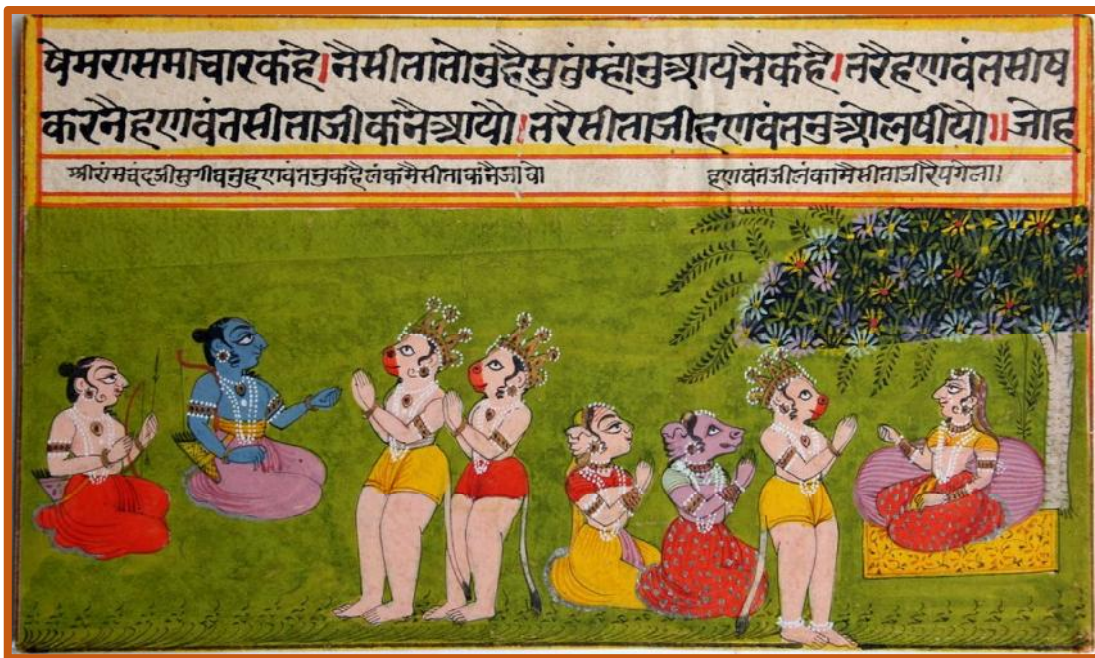 षेमरासमाचारकहे।नैसीतातोनुहैमुतुंम्हांनुआयनैकहै।तरैहणवंतसीष
करनैहणवंतसीताजीकनैआयौ।तरैसीताजीहणवंतनुओलषीयौ॥जोह
श्रीरांमचंदजीसुग्रीवनुहणवंतनुकहैलंकमैसीताकनैजावो
हणवंतजीलंकामैसीताजीरैपगेला।